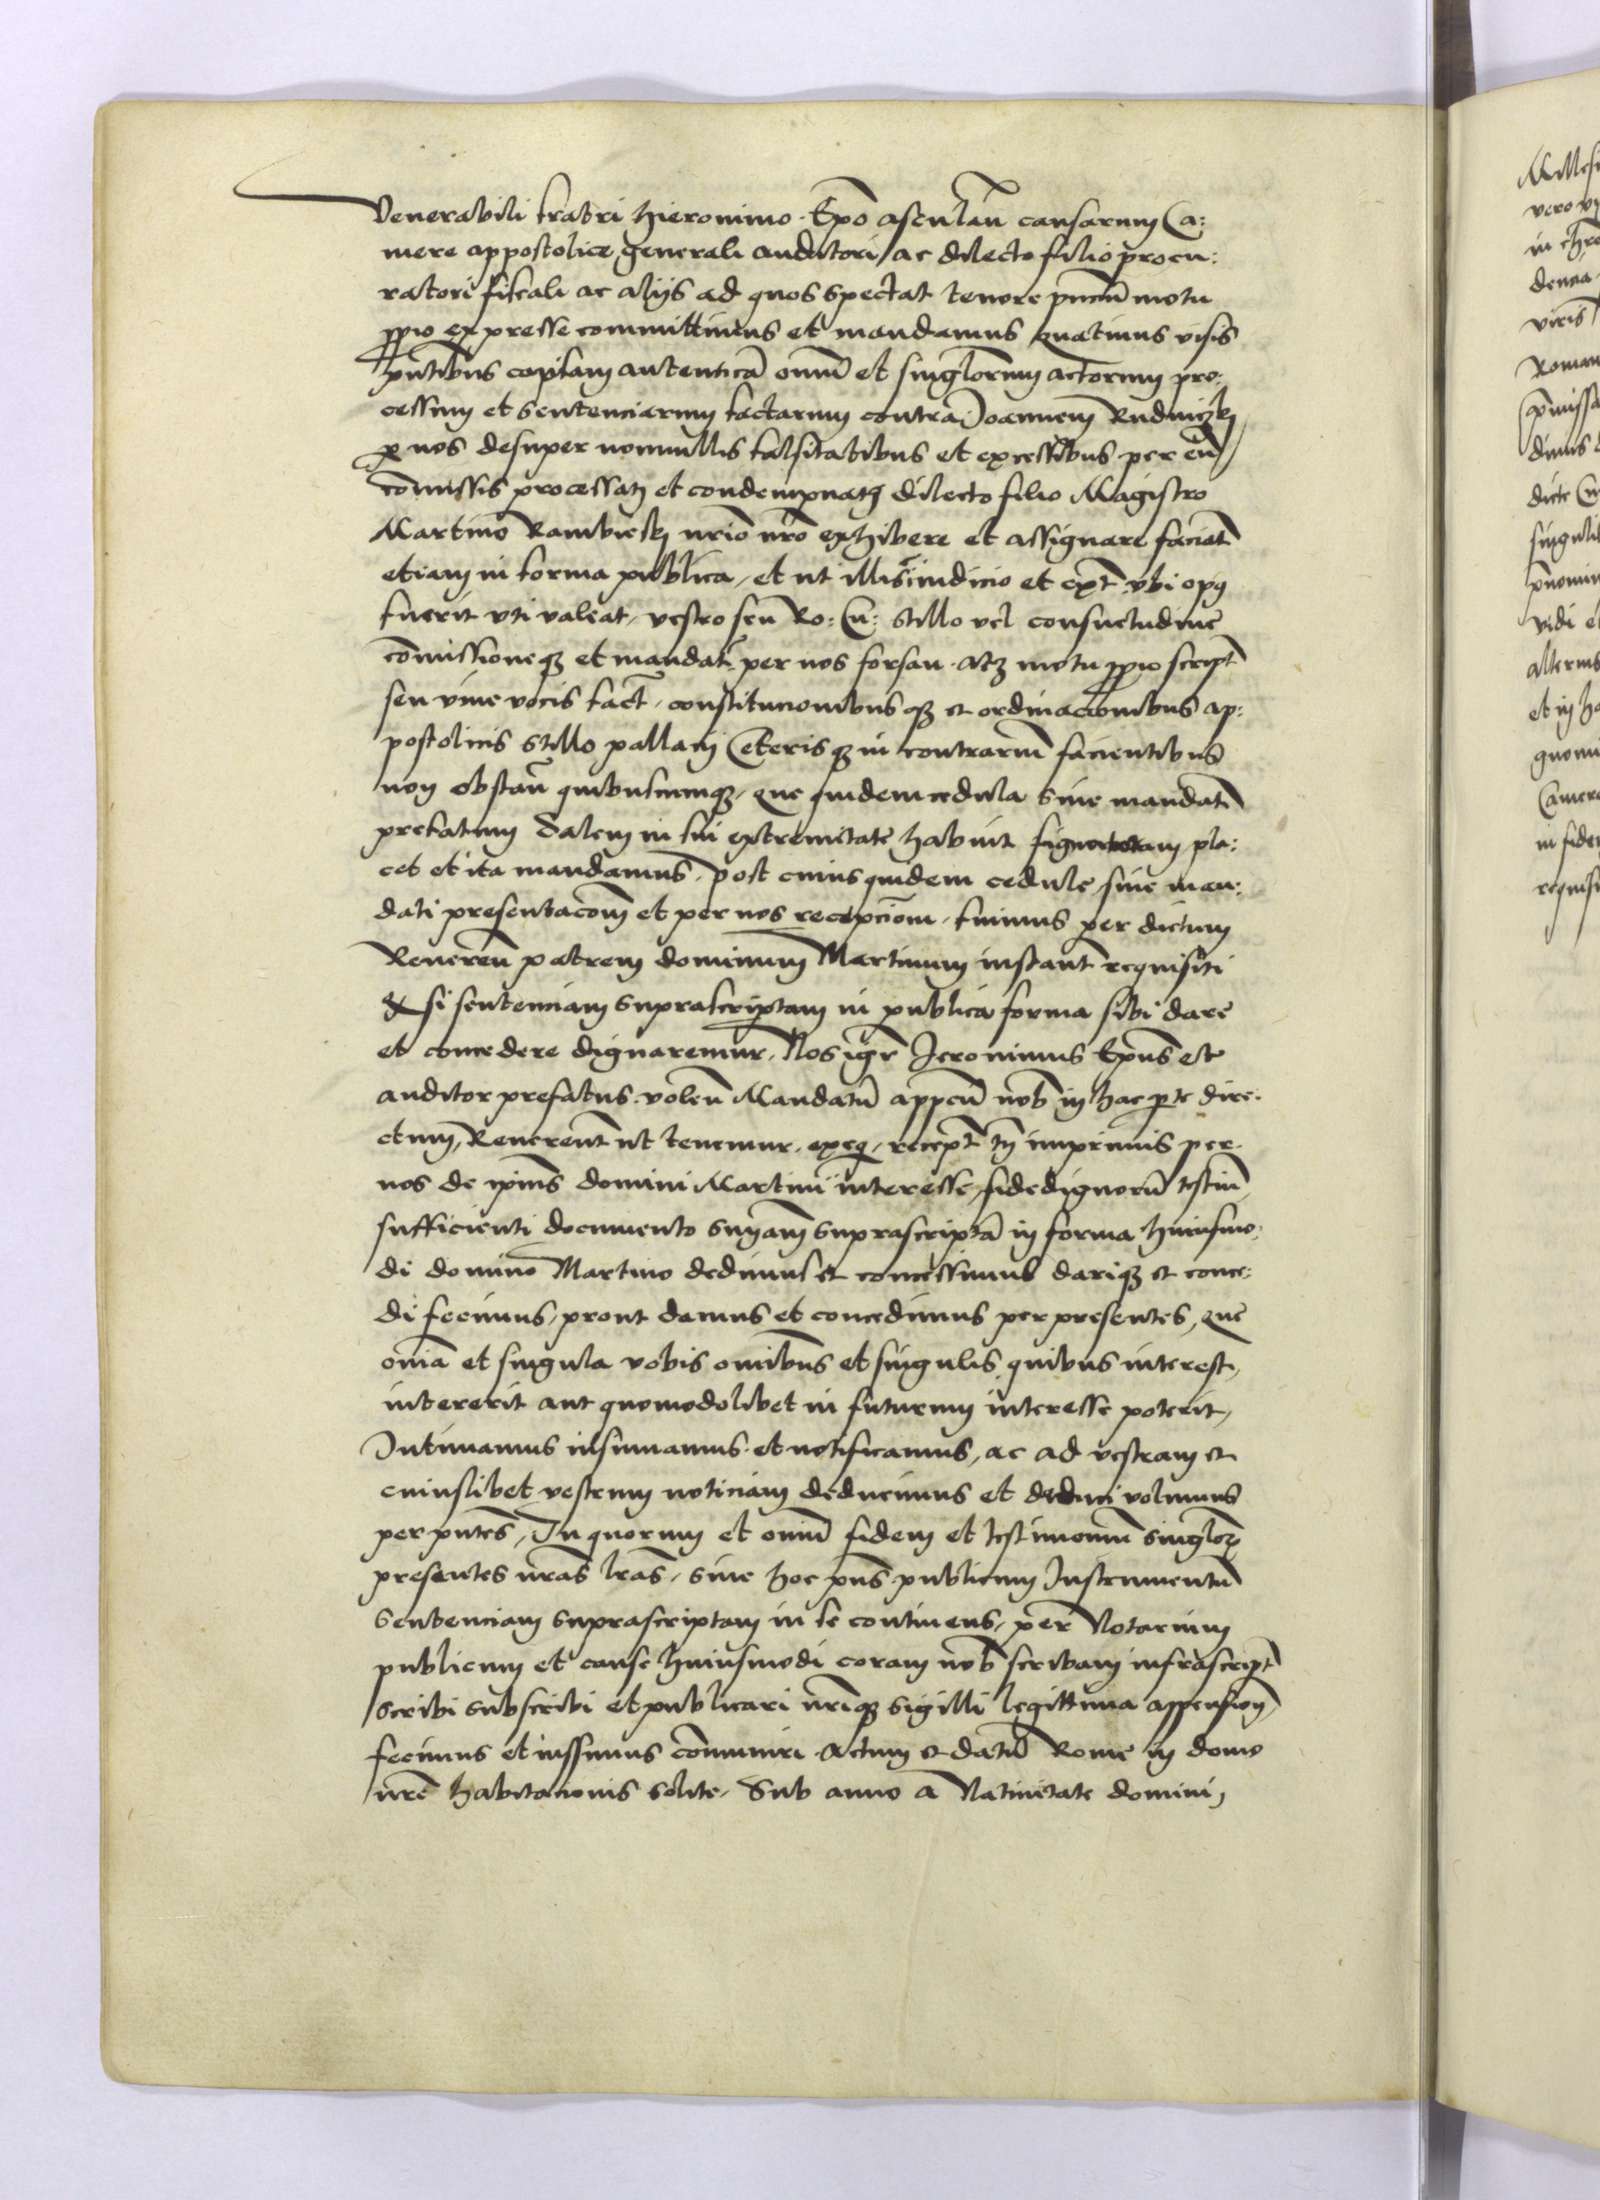 Venerabili fratri Hieronimo Epo asculan̄ causarum Ca:
mere appostolice generali auditori, ac dilecto filio procu:
ratori fiscali ac alijs ad quos spectat tenore pn̄tiū motu
ꝓprio expresse committimus et mandamus quatinus visis
pn̄tibus copiam autenticā om̄iū et singlorum actorum pro:
cessum et sentenciarum factarum contra Joannem Rudniczkj
ꝑ nos desuper nonnullis falsitatibus et excessibus per eū
cōmissis processatj et condempnatj dilecto filio Magistro
Martino Rambieskj nr̄io nr̄o exhibere et assignare faciat̄
etiam in forma publica, et ut illis iudicio et ext̄ vbi opꝰ
fuerit vti valeat, vestro seu Ro: Cu: stillo vel consuetudine
cōmissioneqꝫ et mandat̄ per nos forsan aꝉꝫ motu ꝓprio script̄
seu viue vocis fact̄, constitucionibusqꝫ et ordinacionibus ap:
postolicis stillo pallacij Ceterisqꝫ in contrariū facientibus
non obstan̄ quibuscumqꝫ, Que quidem cedula siue mandatū
prefatum Talem in sui extremitate habuit signaturam pla:
cet et ita mandamus, Post cuius quidem cedule siue man:
dati presentacōm et per nos recepciōm, fuimus per dictum
Reueren̄ patrem dominum Martinum instant̄ requisiti
Qͣ si sentenciam suprascriptam in publica forma sibi dare
et concedere dignaremur, Nos igr̄ Jeronimus Epūs et
auditor prefatus volen̄ Mandatū appcū nob̄ in hac ꝑte dire:
ctum, Reuerent̄ ut tenemur exeqꝫ, recept̄ tn̄ imprimis per
nos de ipius domini Martini interesse, fidedignorū testiū
sufficienti documento snīam suprascriptā in forma huiusmo:
di domino Martino dedimus et concessimus dariqꝫ et conce:
di fecimus, prout damus et concedimus per presentes, Que
om̄ia et singula vobis om̄ibus et singulis quibus interest,
intererit aut quomodolibet in futurum interesse poterit,
Intimamus insinuamus et notificamus, ac ad vestram et
cuiuslibet vestrum noticiam deducimus et deduci volumus
per pn̄tes, In quorum et om̄iū fidem et testimoniū singlorꝫ
presentes nr̄as lr̄as, siue hoc pn̄s publicum Instrumentū
Sentenciam suprascriptam in se continens, per Notarium
publicum et cause huiusmodi coram nob̄ scribam infrascript̄
scribi subscribi et publicari nr̄iqꝫ sigilli legittima appensiōn
fecimus et iussimus cōmuniri Actum et datū Rome in domo
nr̄e habitacionis solite, Sub anno a Natiuitate domini,